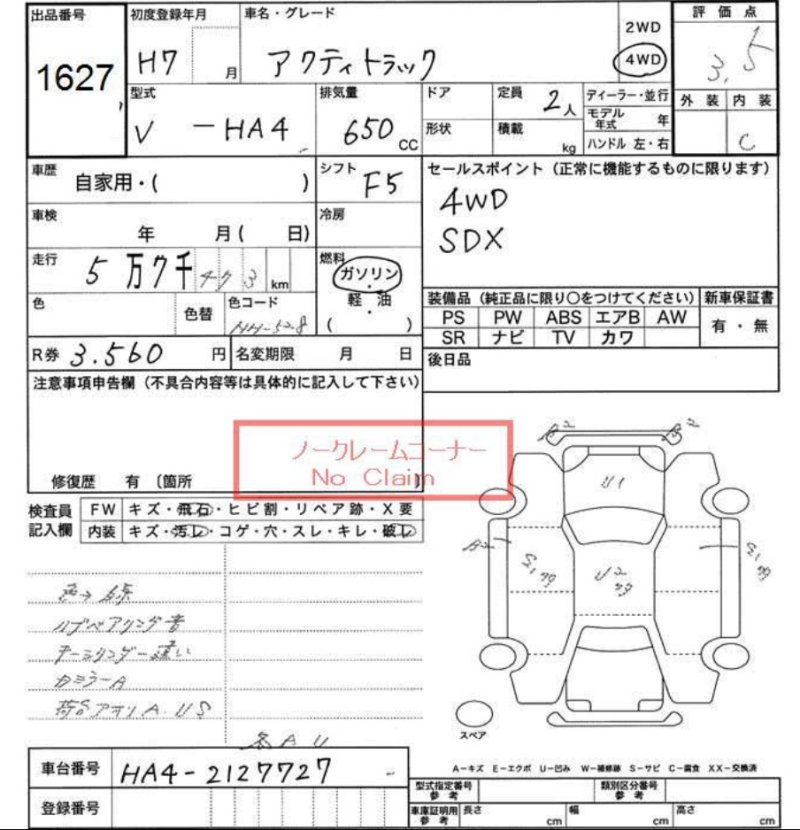 出品番号 初度登録年月 車名・グレード 2WD 評価点
1627 H7 月 アクティトラック 4WD 3.5
型式 排気量 ドア 定員 2人 ディーラー・並行 外装 内装
V -HA4 650 CC モデル年式 年 C
形状 積載 kg ハンドル 左・右
車歴 自家用・( ) シフト F5 セールスポイント (正常に機能するものに限ります)
4WD
SDX
車検 年 月( 日) 冷房
走行 5万7千473 km 燃料 ガソリン・軽油・( )
色 色替 色コード NH-528 装備品 (純正品に限り○をつけてください) 新車保証書
PS PW ABS エアB AW 有・無
SR ナビ TV カワ
R券 3.560 円 名変期限 月 日 後日品
注意事項申告欄 (不具合内容等は具体的に記入して下さい)
ノークレームコーナー
No Claim
修復歴 有 (箇所
検査員 FW キズ・飛石・ヒビ割・リペア跡・X要
記入欄 内装 キズ・汚レ・コゲ・穴・スレ・キレ・破レ
B2 B2
U1
B2 S1 U2 S1
ハブベアリング音
カミラーA
荷台アオリA.US
スペア
A U
A-キズ E-エクボ U-凹み W-補修跡 S-サビ C-腐食 XX-交換済
車台番号 HA4-2127727
型式指定番号 参考 類別区分番号 参考
登録番号 車庫証明用 参考 長さ cm 幅 cm 高さ cm